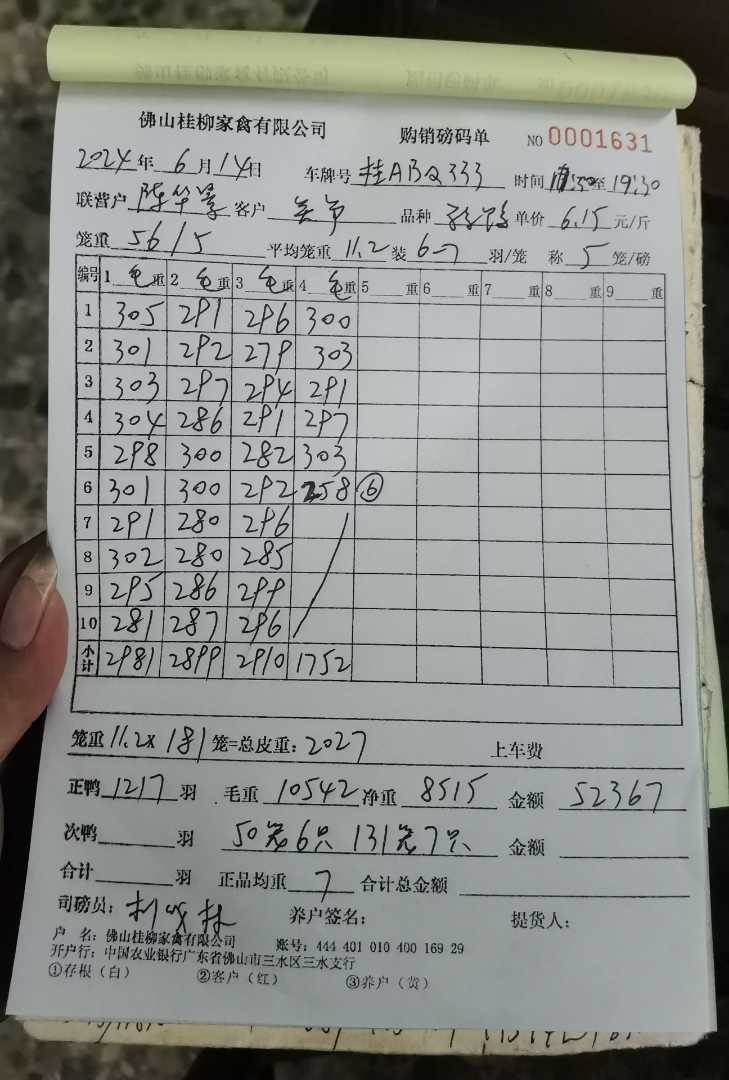 佛山桂柳家禽有限公司 购销磅码单 NO 0001631
2024年 6月14日 车牌号 桂ABQ333 时间 至 19:30
联营户 陈华 客户 品种 单价 6.15 元/斤
笼重 56/5 平均笼重 11.2 装 6-7 羽/笼 称 5 笼/磅
编号 1 毛重 2 毛重 3 毛重 4 毛重 5 重 6 重 7 重 8 重 9 重
1 305 291 296 300
2 301 292 279 303
3 303 297 294 291
4 304 286 291 297
5 298 300 282 303
6 301 300 292 358 ⑥
7 291 280 296
8 302 280 285
9 295 286 299
10 281 287 296
小计 2981 2899 2910 1752
笼重 11.2x 181 笼=总皮重: 2027 上车费
正鸭 1217 羽 毛重 10542 净重 8515 金额 52367
次鸭 羽 50笼6只 131笼7只 金额
合计 羽 正品均重 7 合计总金额
司磅员: 养户签名: 提货人:
户 名: 佛山桂柳家禽有限公司 账号: 444 401 010 400 169 29
开户行: 中国农业银行广东省佛山市三水区三水支行
①存根（白） ②客户（红） ③养户（黄）